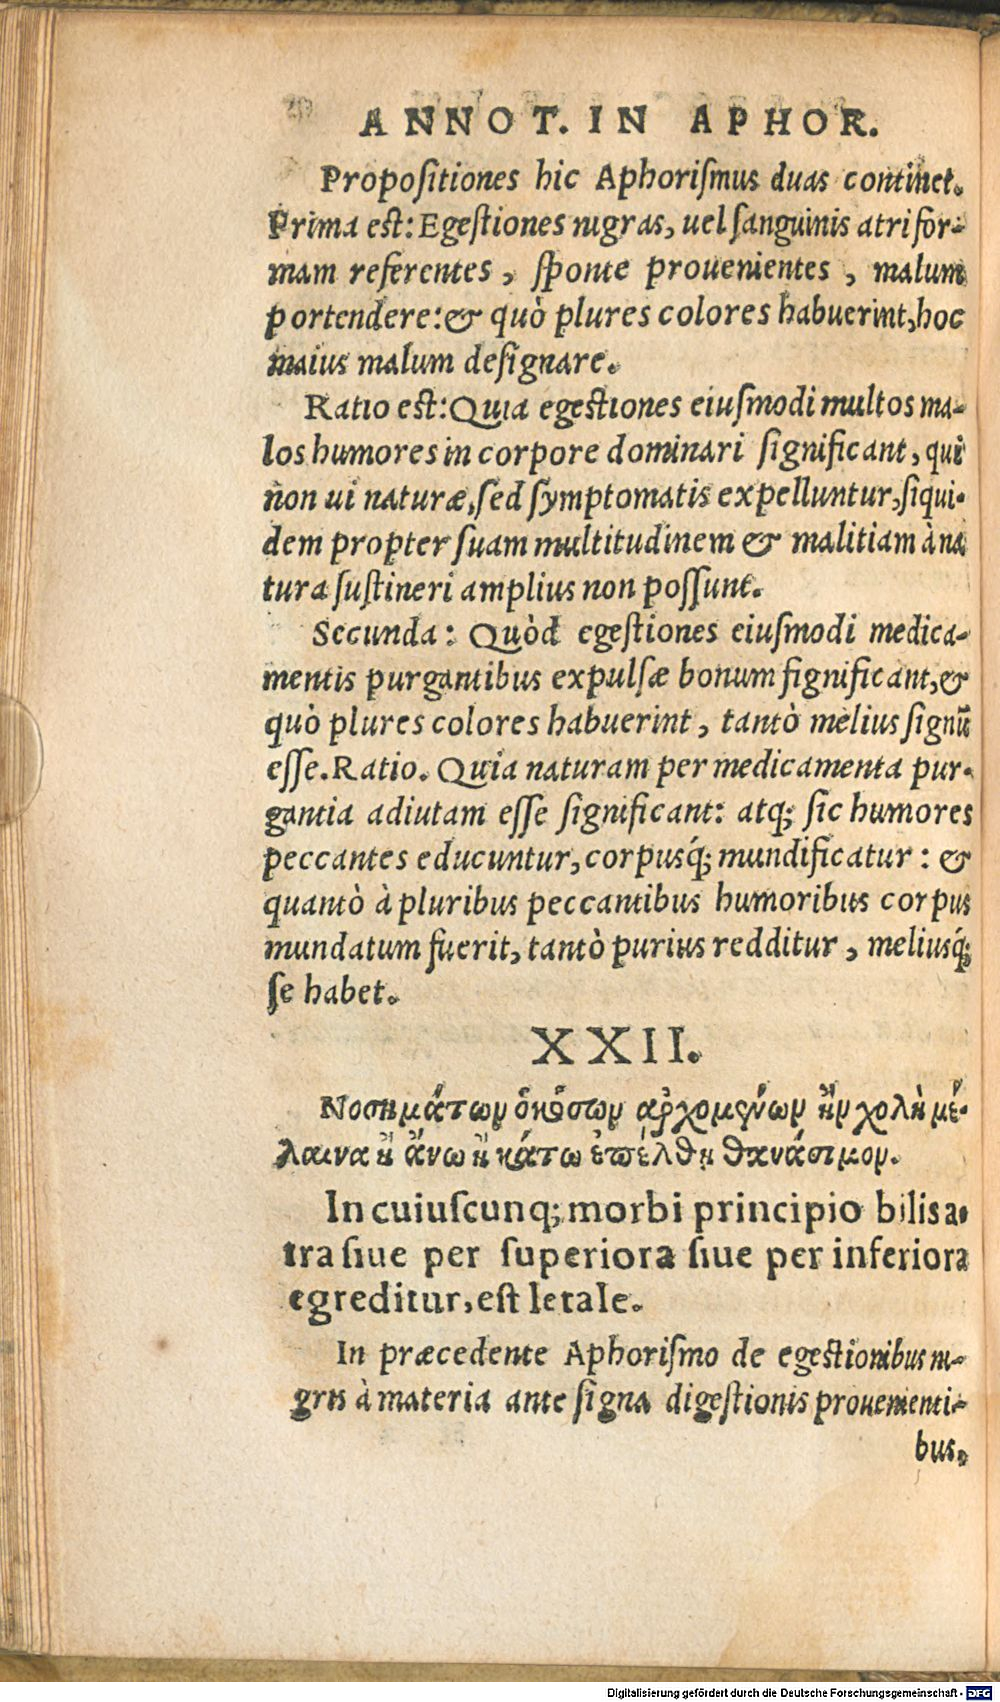 ANNOT. IN APHOR.
Propoſitiones hic Aphoriſmus duas continet.
Prima eſt: Egeſtiones nigras, uel ſanguinis atri for-
mam referentes, ſponte prouenientes, malum
portendere: & quò plures colores habuerint, hoc
maius malum deſignare.
Ratio eſt: Quia egeſtiones eiuſmodi multos ma-
los humores in corpore dominari ſignificant, qui
non ui naturæ, ſed ſymptomatis expelluntur, ſiqui-
dem propter ſuam multitudinem & malitiam à na
tura ſuſtineri amplius non poſſunt.
Secunda: Quòd egeſtiones eiuſmodi medica-
mentis purgantibus expulſæ bonum ſignificant, &
quò plures colores habuerint, tantò melius ſignũ
eſſe. Ratio. Quia naturam per medicamenta pur-
gantia adiutam eſſe ſignificant: atq; ſic humores
peccantes educuntur, corpusq́; mundificatur: &
quantò à pluribus peccantibus humoribus corpus
mundatum fuerit, tantò purius redditur, meliusq́;
ſe habet.
XXII.
Νοσημάτων ὁκόσων ἀρχομένων ἢν χολὴ μέ-
λαινα ἢ ἄνω ἢ κάτω ἐπέλθῃ θανάσιμον.
In cuiuſcunq; morbi principio bilis a-
tra ſiue per ſuperiora ſiue per inferiora
egreditur, eſt letale.
In præcedente Aphoriſmo de egeſtionibus ni-
gris à materia ante ſigna digeſtionis prouenienti-
bus.
Digitalisierung gefördert durch die Deutsche Forschungsgemeinschaft - DFG